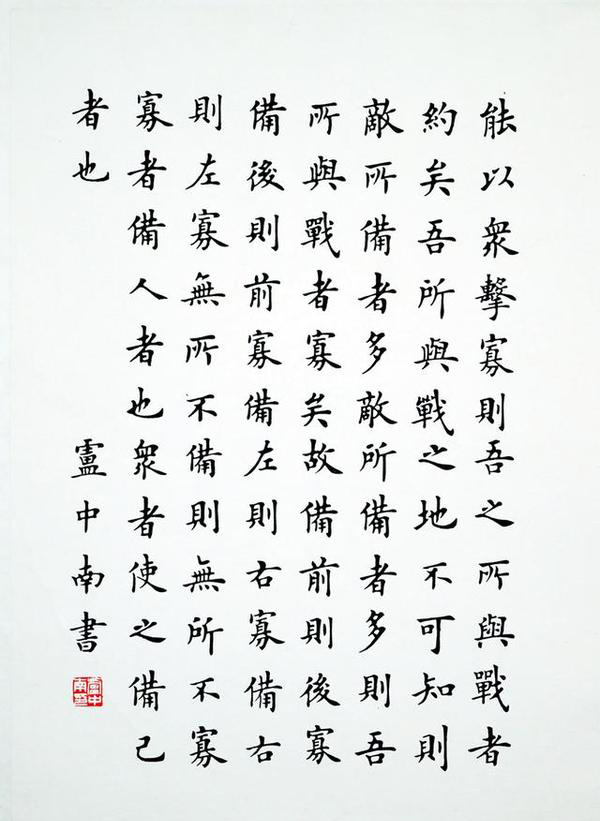 能以衆擊寡則吾之所與戰者
約矣吾所與戰之地不可知則
敵所備者多敵所備者多則吾
所與戰者寡矣故備前則後寡
備後則前寡備左則右寡備右
則左寡無所不備則無所不寡
寡者備人者也衆者使之備己
者也 盧中南書
盧中南